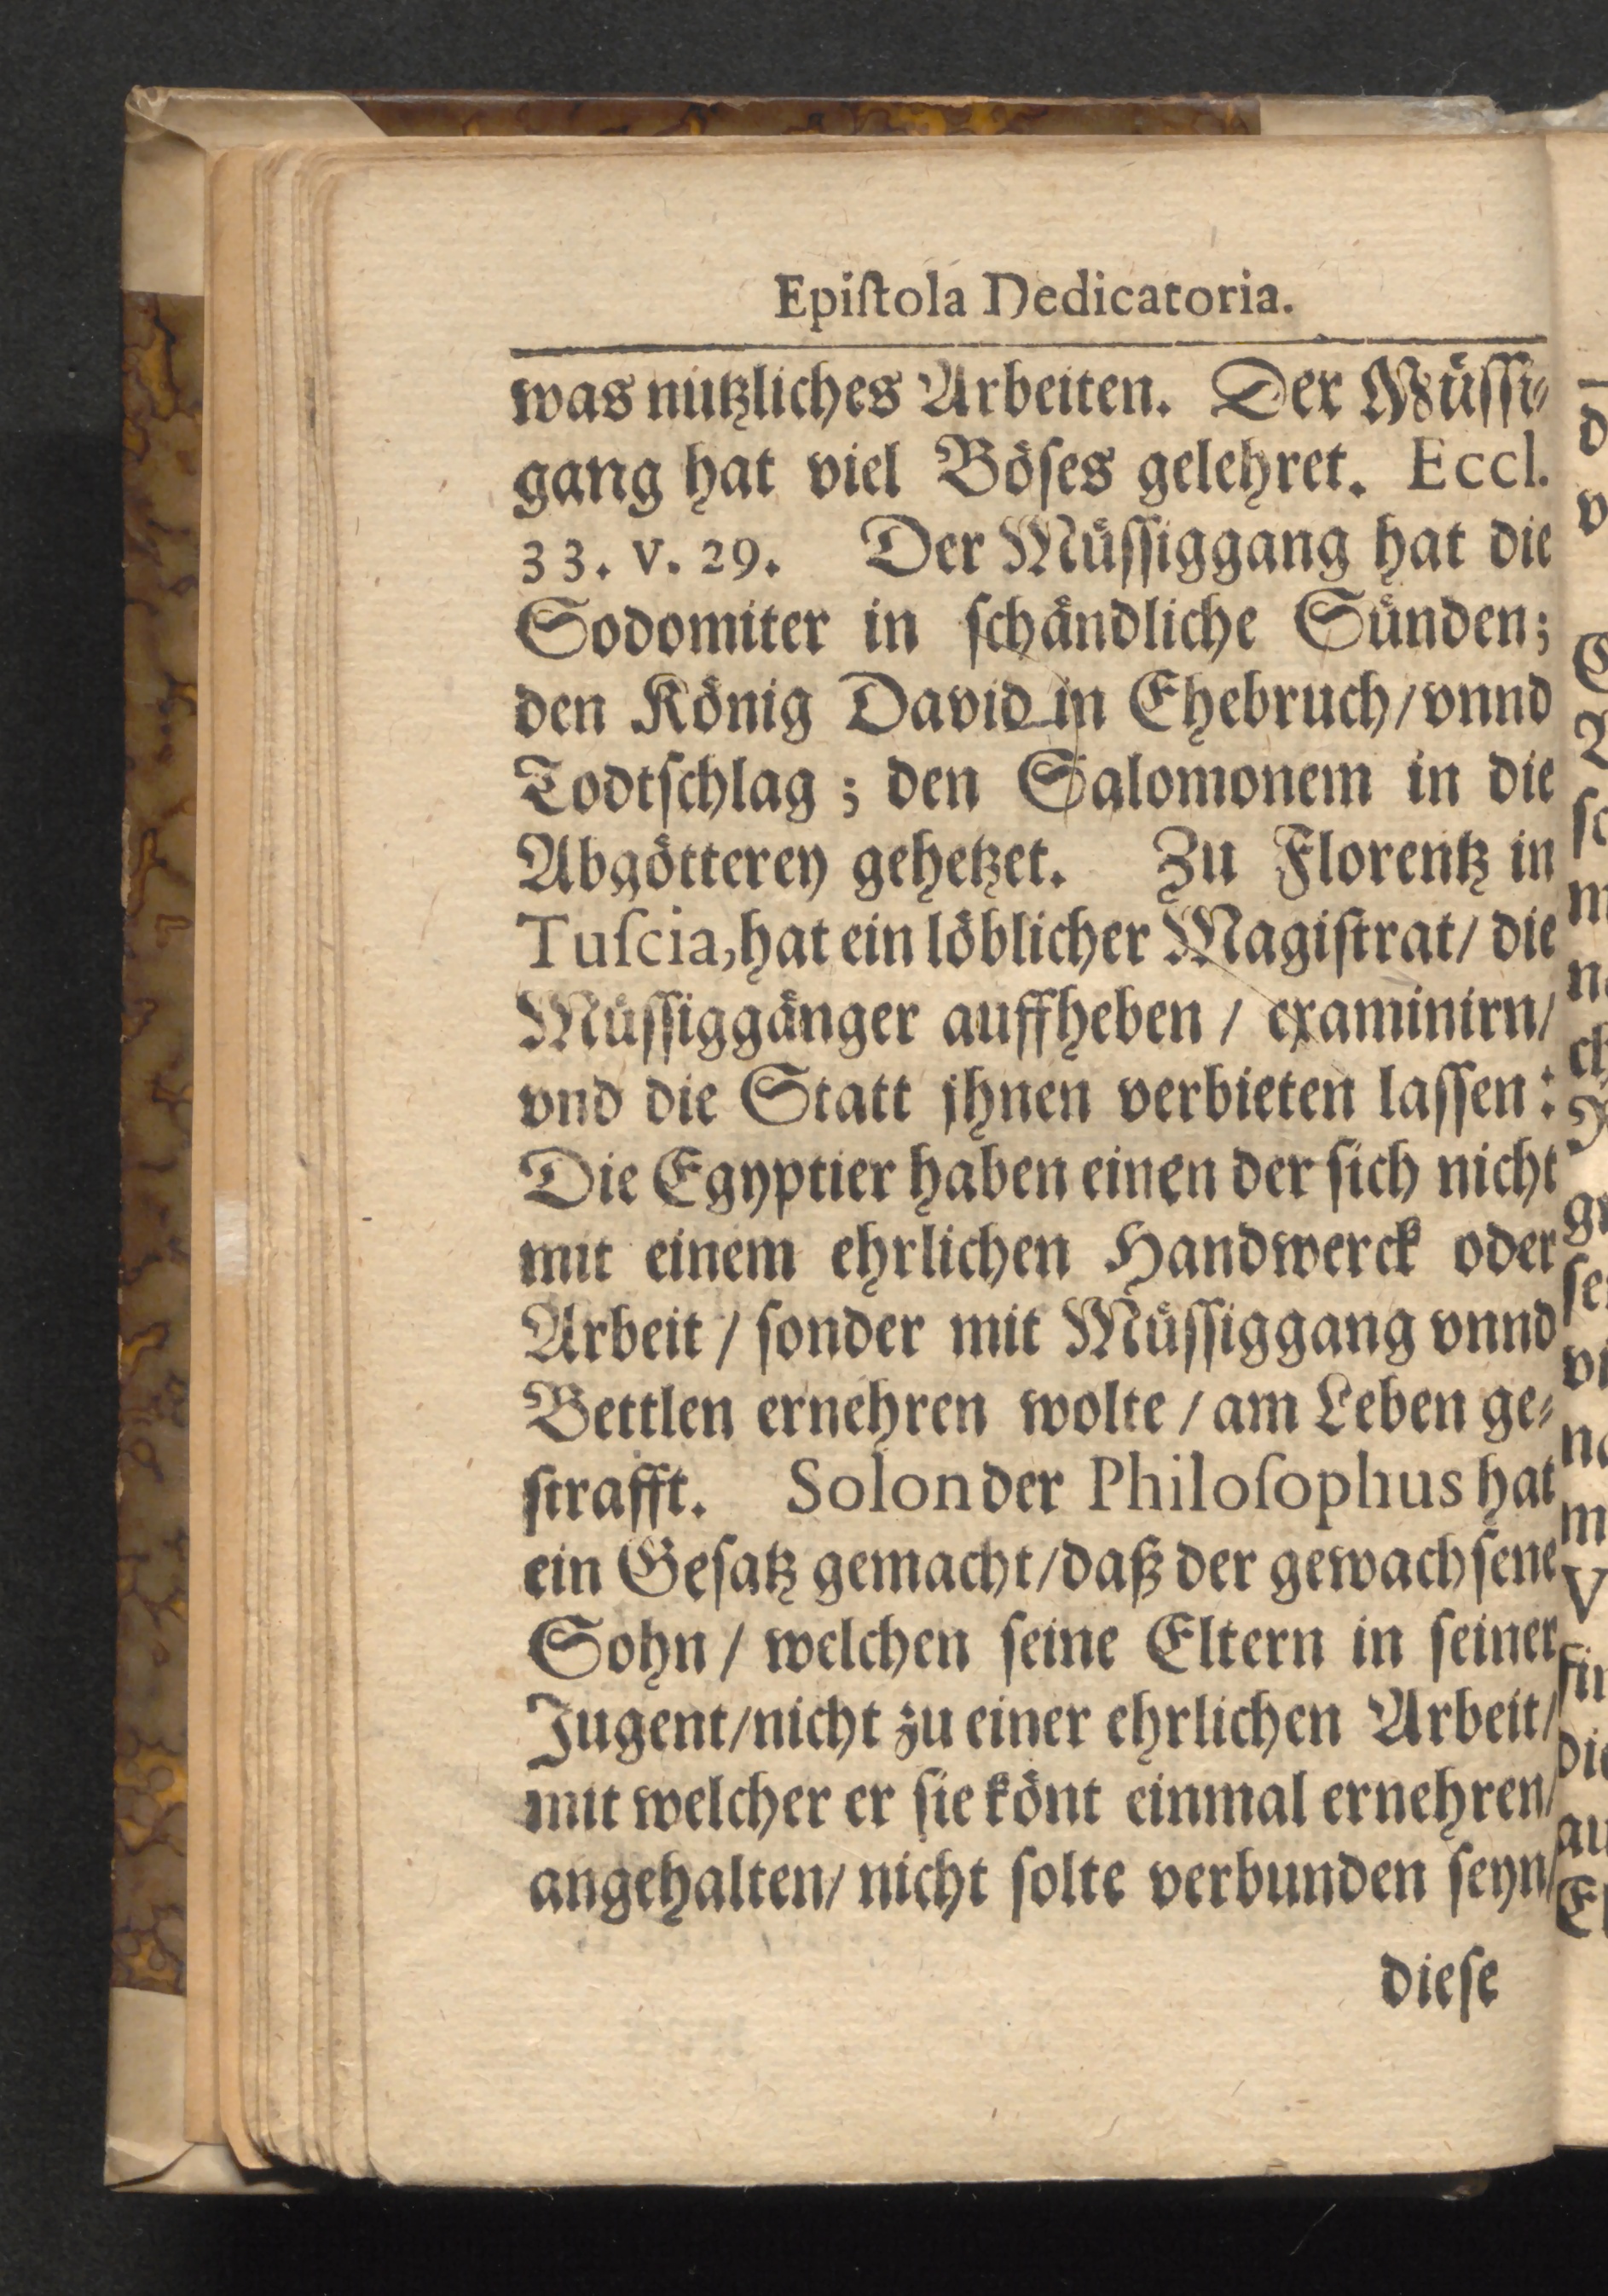 Epiſtola Dedicatoria.
was nutzliches Arbeiten. Der Müſſi⸗
gang hat viel Böſes gelehret. Eccl.
33. v. 29. Der Müſſiggang hat die
Sodomiter in ſchändliche Sünden;
den König David in Ehebruch/vnnd
Todtſchlag; den Salomonem in die
Abgötterey gehetzet. Zu Florentz in
Tuſcia, hat ein löblicher Magiſtrat/ die
Müſſiggänger auffheben / examinirn/
vnd die Statt jhnen verbieten laſſen:
Die Egyptier haben einen der ſich nicht
mit einem ehrlichen Handwerck oder
Arbeit / ſonder mit Müſſiggang vnnd
Bettlen ernehren wolte / am Leben ge⸗
ſtrafft. Solon der Philoſophus hat
ein Geſatz gemacht/daß der gewachſene
Sohn / welchen ſeine Eltern in ſeiner
Jugent/nicht zu einer ehrlichen Arbeit/
mit welcher er ſie könt einmal ernehren/
angehalten/ nicht ſolte verbunden ſeyn/
dieſe